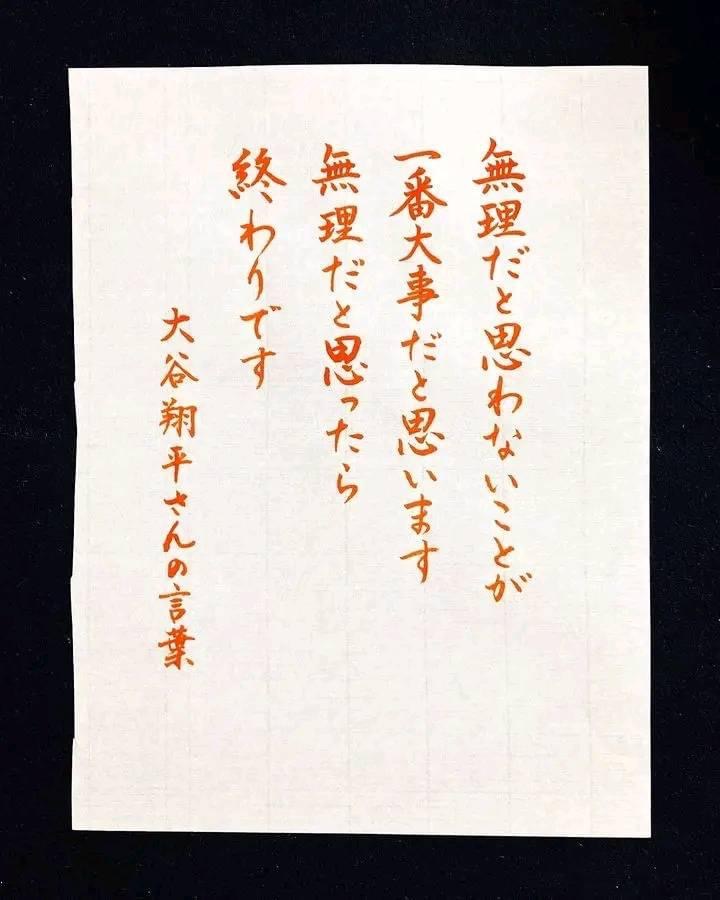 無理だと思わないことが
一番大事だと思います
無理だと思ったら
終わりです
大谷翔平さんの言葉